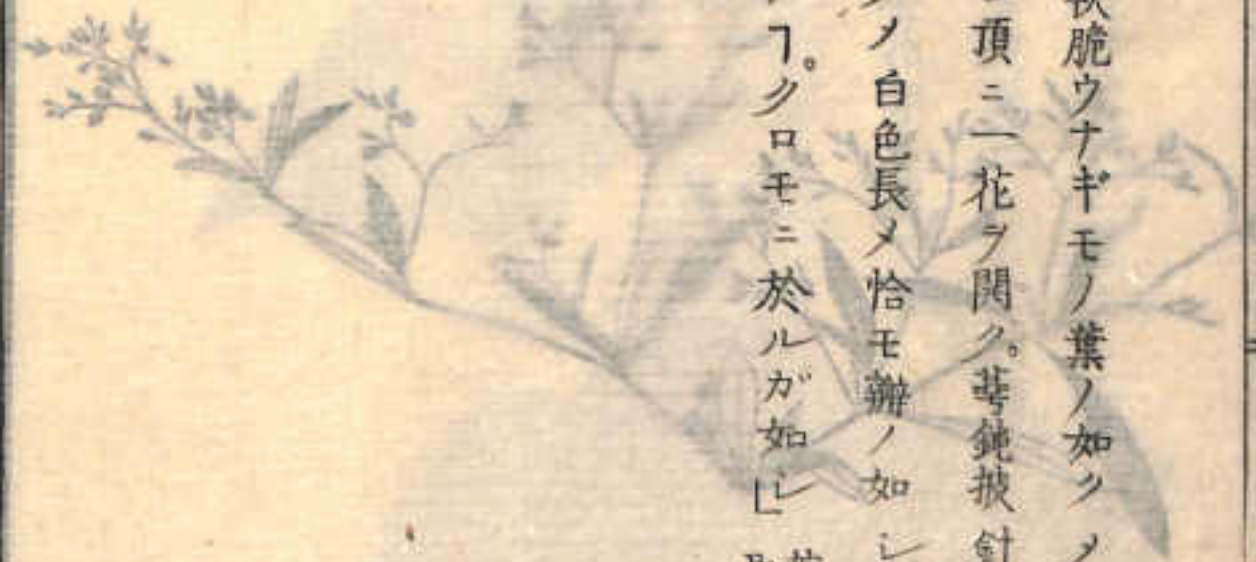 脆ウナギモノ葉ノ如クメ
頂ニ一花ヲ開ク。萼鈍披針
メ白色長メ恰モ瓣ノ如シ
ヿ。クロモニ於ルガ如シ」